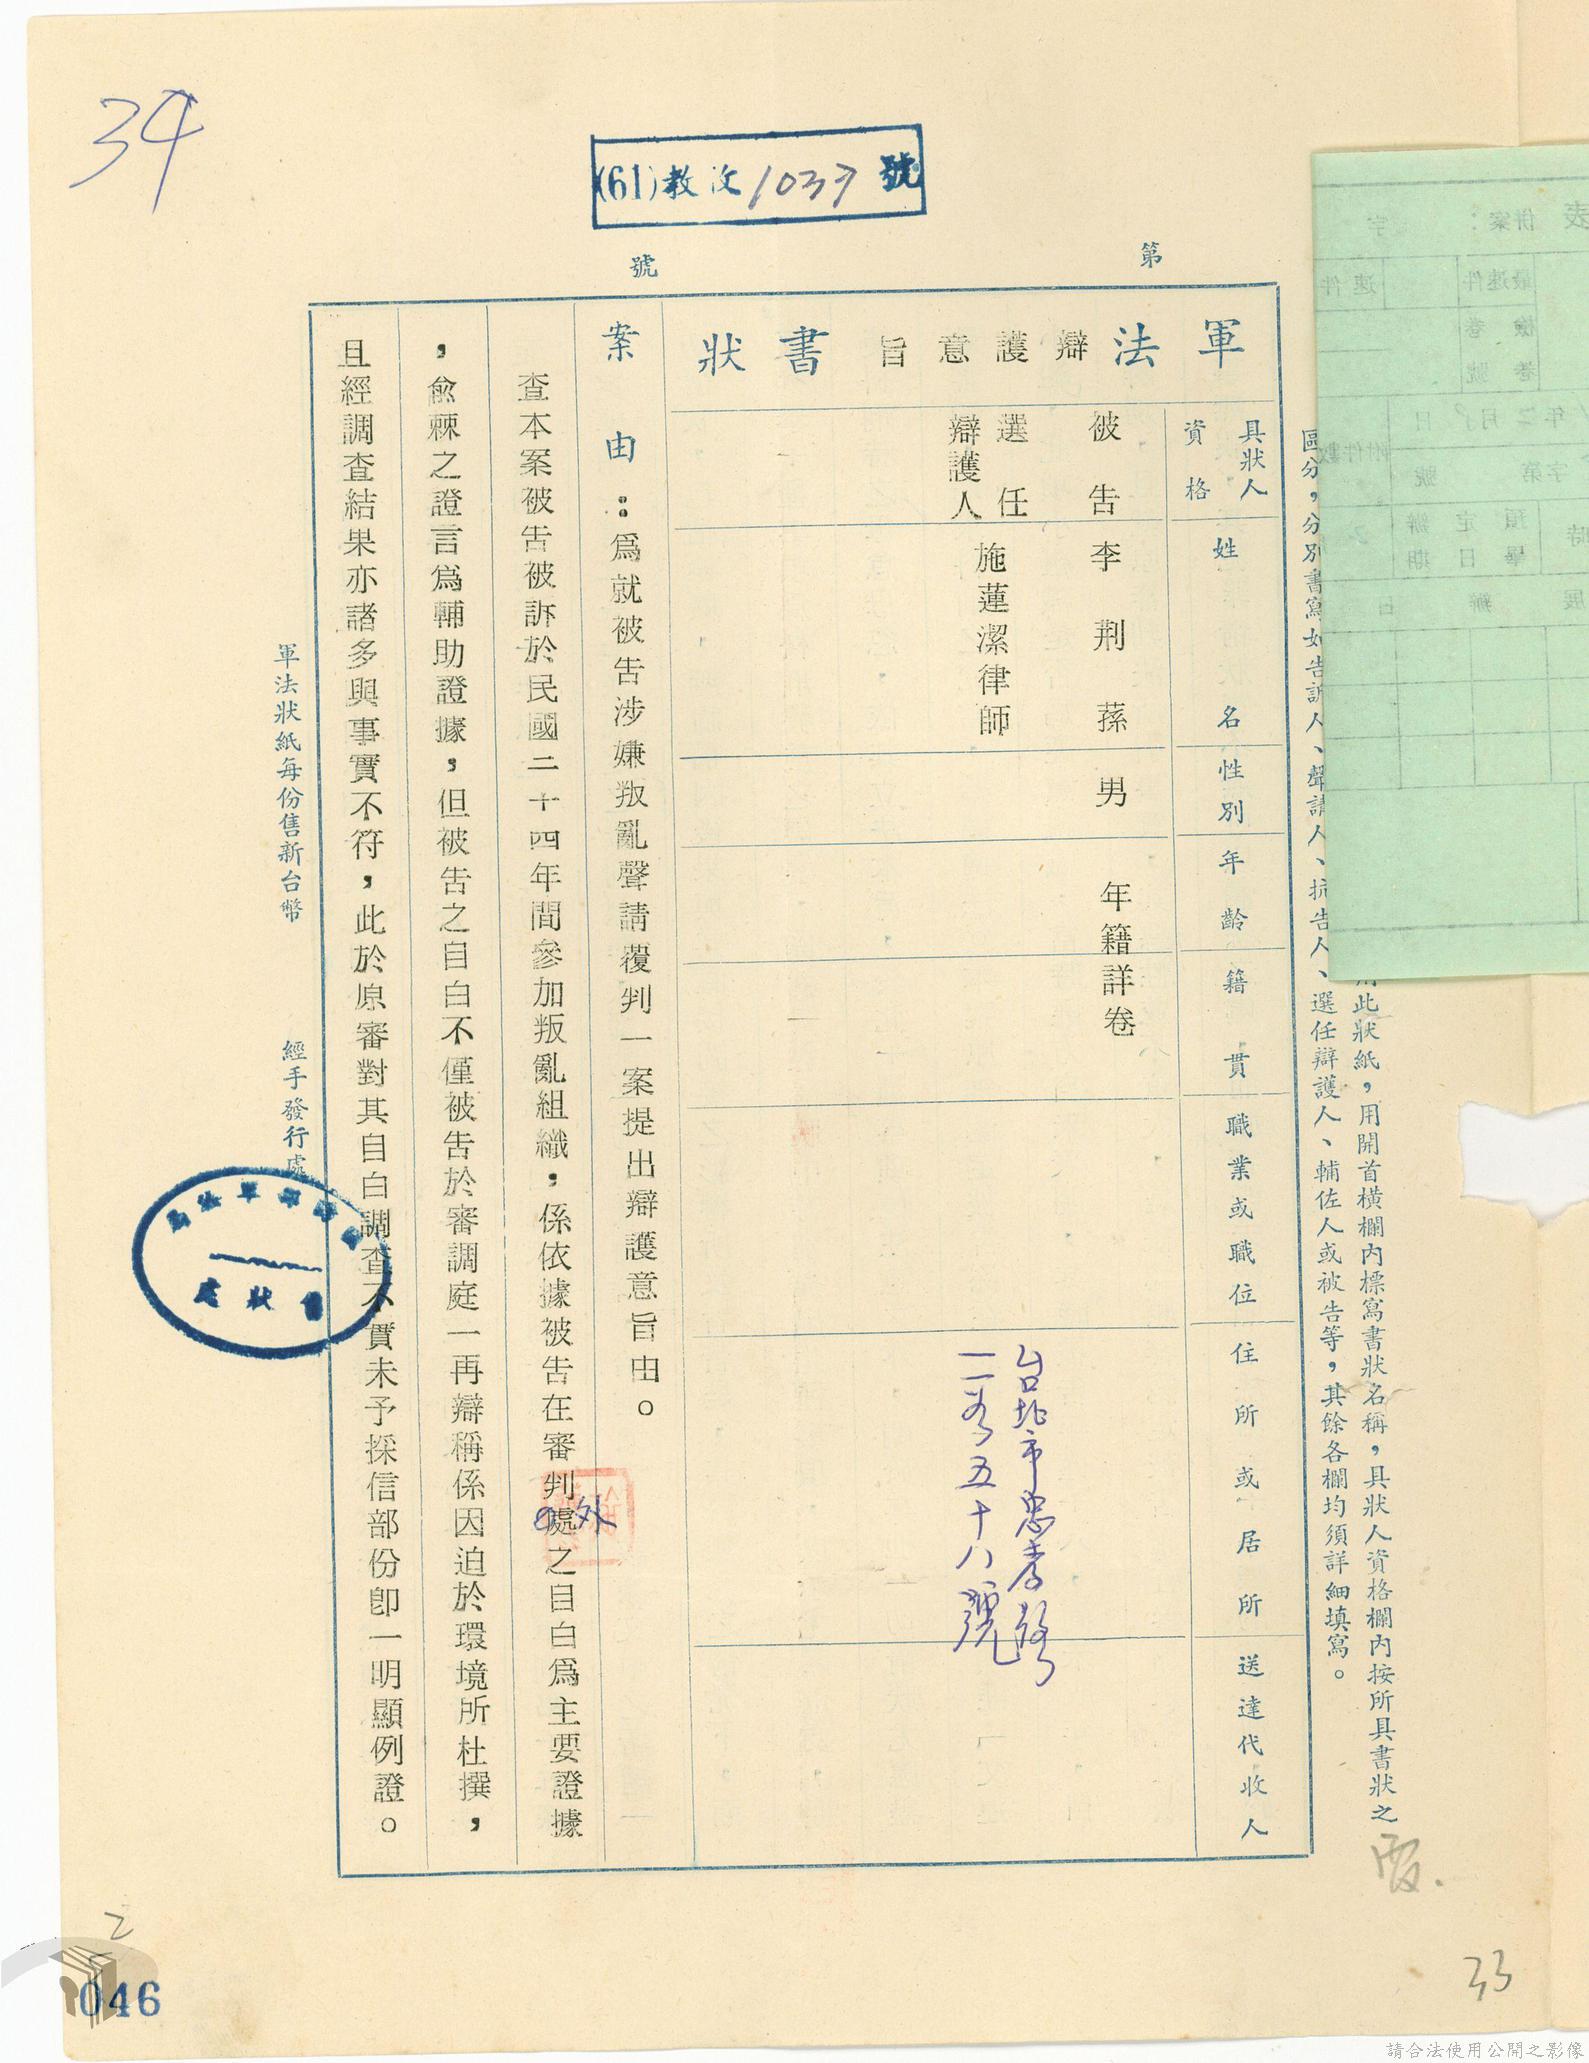 34
(61)教汶1037號
第 號
用此狀紙，用開首橫欄內標寫書狀名稱，具狀人資格欄內按所具書狀之
區分，分別書寫如告訴人、聲請人、抗告人、選任辯護人、輔佐人或被告等，其餘各欄均須詳細填寫。
軍法辯護意旨書狀
具狀人資格
姓名
性別
年齡
籍貫
職業或職位
住所或居所
送達代收人
被告 李荆蓀 男 年籍詳卷
選任辯護人 施蓮潔律師
台北市忠孝路
二段五十八號
案由：爲就被告涉嫌叛亂聲請覆判一案提出辯護意旨由。
查本案被告被訴於民國二十四年間參加叛亂組織，係依據被告在審判處外之自白爲主要證據
，俞棘之證言爲輔助證據，但被告之自白不僅被告於審調庭一再辯稱係因迫於環境所杜撰，
且經調查結果亦諸多與事實不符，此於原審對其自白調查不實未予採信部份卽一明顯例證。
軍法狀紙每份售新台幣 經手發行處
售狀處
併案：
字
最速件
速件
檢卷
卷號
附件數
年二月 日
字第 號
預定辦畢日期
展辦 日
霞.
33
2
046
請合法使用公開之影像